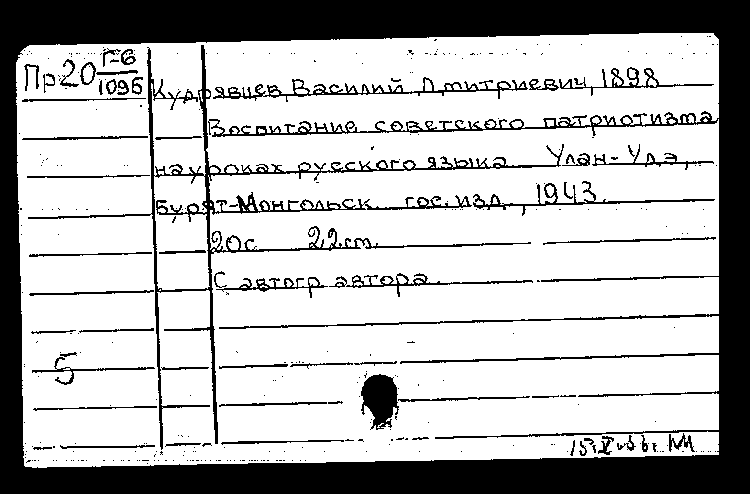 Пр20 Г-6
1095
Кудрявцев, Василий Дмитриевич, 1898
Воспитание советского патриотизма
на уроках русского языка Улан-Удэ,
Бурят-Монгольск. гос. изд., 1943.
20с. 22 cm.
С автогр автора.
5